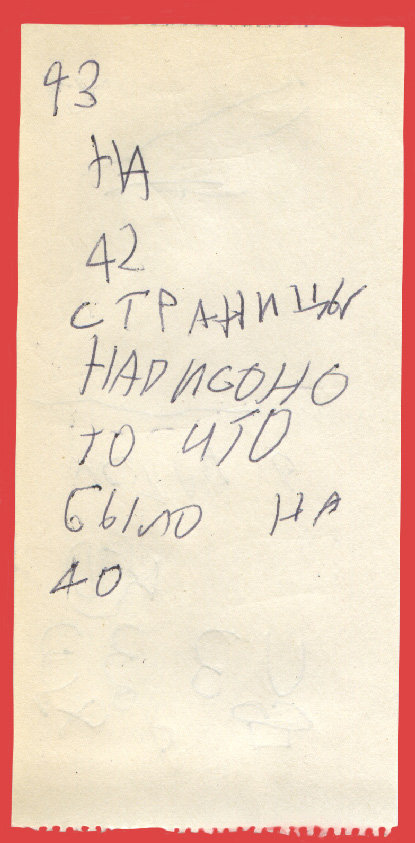 43
НА
42
СТРАНИЦЫ
НАПИСОНО
ТО ЧТО
БЫЛО НА
40